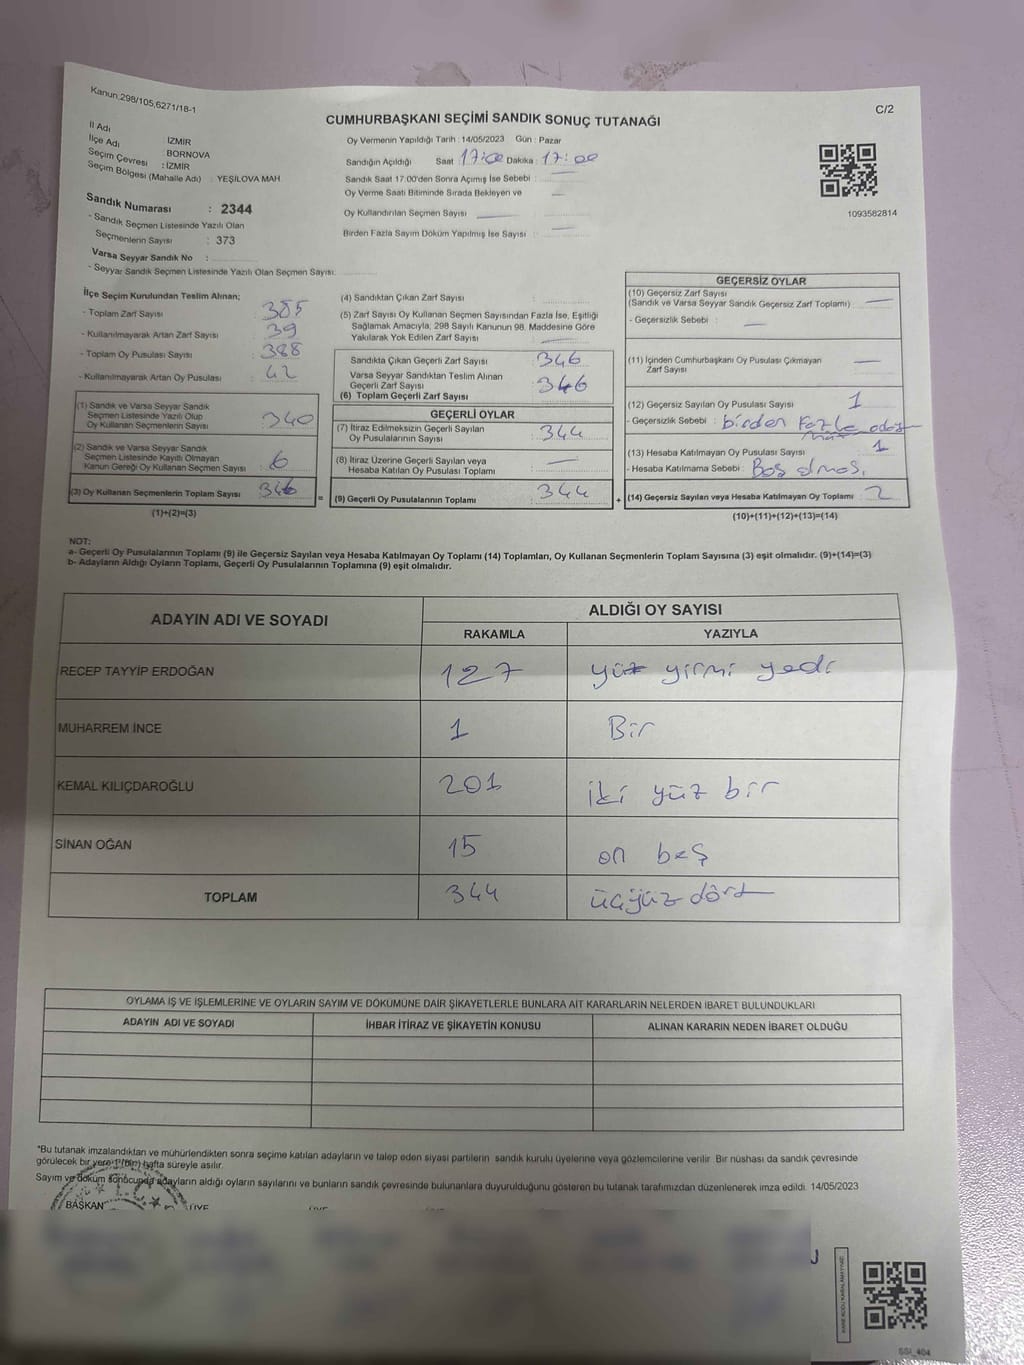 Kanun;298/105,6271/18-1
C/2
CUMHURBAŞKANI SEÇİMİ SANDIK SONUÇ TUTANAĞI
İl Adı : İZMİR
İlçe Adı : BORNOVA
Seçim Çevresi : İZMİR
Seçim Bölgesi (Mahalle Adı) : YEŞİLOVA MAH
Oy Vermenin Yapıldığı Tarih : 14/05/2023 Gün : Pazar
Sandığın Açıldığı Saat 17:00 Dakika : 17:00
Sandık Saat 17:00'den Sonra Açmış İse Sebebi : —
Oy Verme Saati Bitiminde Sırada Bekleyen ve —
Oy Kullandırılan Seçmen Sayısı —
Birden Fazla Sayım Döküm Yapılmış İse Sayısı : —
1093582814
Sandık Numarası : 2344
- Sandık Seçmen Listesinde Yazılı Olan
Seçmenlerin Sayısı : 373
Varsa Seyyar Sandık No :
- Seyyar Sandık Seçmen Listesinde Yazılı Olan Seçmen Sayısı:
İlçe Seçim Kurulundan Teslim Alınan;
- Toplam Zarf Sayısı : 385
- Kullanılmayarak Artan Zarf Sayısı : 39
- Toplam Oy Pusulası Sayısı : 388
- Kullanılmayarak Artan Oy Pusulası : 42
(1) Sandık ve Varsa Seyyar Sandık
Seçmen Listesinde Yazılı Olup
Oy Kullanan Seçmenlerin Sayısı : 340
(2) Sandık ve Varsa Seyyar Sandık
Seçmen Listesinde Kayıtlı Olmayan
Kanun Gereği Oy Kullanan Seçmen Sayısı : 6
(3) Oy Kullanan Seçmenlerin Toplam Sayısı : 346
(1)+(2)=(3)
(4) Sandıktan Çıkan Zarf Sayısı :
(5) Zarf Sayısı Oy Kullanan Seçmen Sayısından Fazla İse, Eşitliği
Sağlamak Amacıyla, 298 Sayılı Kanunun 98. Maddesine Göre
Yakılarak Yok Edilen Zarf Sayısı : —
Sandıkta Çıkan Geçerli Zarf Sayısı : 346
Varsa Seyyar Sandıktan Teslim Alınan
Geçerli Zarf Sayısı : 346
(6) Toplam Geçerli Zarf Sayısı
GEÇERLİ OYLAR
(7) İtiraz Edilmeksizin Geçerli Sayılan
Oy Pusulalarının Sayısı : 344
(8) İtiraz Üzerine Geçerli Sayılan veya
Hesaba Katılan Oy Pusulası Toplamı : —
= (9) Geçerli Oy Pusulalarının Toplamı : 344
GEÇERSİZ OYLAR
(10) Geçersiz Zarf Sayısı
(Sandık ve Varsa Seyyar Sandık Geçersiz Zarf Toplamı) : —
- Geçersizlik Sebebi : —
(11) İçinden Cumhurbaşkanı Oy Pusulası Çıkmayan
Zarf Sayısı —
(12) Geçersiz Sayılan Oy Pusulası Sayısı : 1
- Geçersizlik Sebebi : birden Fazla
(13) Hesaba Katılmayan Oy Pusulası Sayısı : 1
- Hesaba Katılmama Sebebi : Boş olması
+ (14) Geçersiz Sayılan veya Hesaba Katılmayan Oy Toplamı : 2
(10)+(11)+(12)+(13)=(14)
NOT:
a- Geçerli Oy Pusulalarının Toplamı (9) ile Geçersiz Sayılan veya Hesaba Katılmayan Oy Toplamı (14) Toplamları, Oy Kullanan Seçmenlerin Toplam Sayısına (3) eşit olmalıdır. (9)+(14)=(3)
b- Adayların Aldığı Oyların Toplamı, Geçerli Oy Pusulalarının Toplamına (9) eşit olmalıdır.
ADAYIN ADI VE SOYADI
ALDIĞI OY SAYISI
RAKAMLA YAZIYLA
RECEP TAYYİP ERDOĞAN 127 yüz yirmi yedi
MUHARREM İNCE 1 Bir
KEMAL KILIÇDAROĞLU 201 iki yüz bir
SİNAN OĞAN 15 on beş
TOPLAM 344 üçyüz dört
OYLAMA İŞ VE İŞLEMLERİNE VE OYLARIN SAYIM VE DÖKÜMÜNE DAİR ŞİKAYETLERLE BUNLARA AİT KARARLARIN NELERDEN İBARET BULUNDUKLARI
ADAYIN ADI VE SOYADI İHBAR İTİRAZ VE ŞİKAYETİN KONUSU ALINAN KARARIN NEDEN İBARET OLDUĞU
*Bu tutanak imzalandıktan ve mühürlendikten sonra seçime katılan adayların ve talep eden siyasi partilerin sandık kurulu üyelerine veya gözlemcilerine verilir Bir nüshası da sandık çevresinde
görülecek bir yere 1 (bir) hafta süreyle asılır.
Sayım ve döküm sonucunda adayların aldığı oyların sayılarını ve bunların sandık çevresinde bulunanlara duyurulduğunu gösteren bu tutanak tarafımızdan düzenlenerek imza edildi. 14/05/2023
BAŞKAN ÜYE
SSI_404